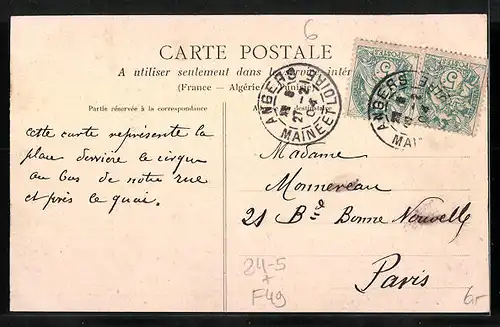 6
CARTE POSTALE
A utiliser seulement dans le service intér
(France - Algérie - Tunisie)
Partie réservée à la correspondance
cette carte représente la
place derrière le cirque
au bas de notre rue
et près le quai.
ANGERS
MAINE-ET-LOIRE
ANGERS
5
5
Madame
Monnereau
21 Bd Bonne Nouvelle
Paris
24-5
+
F49